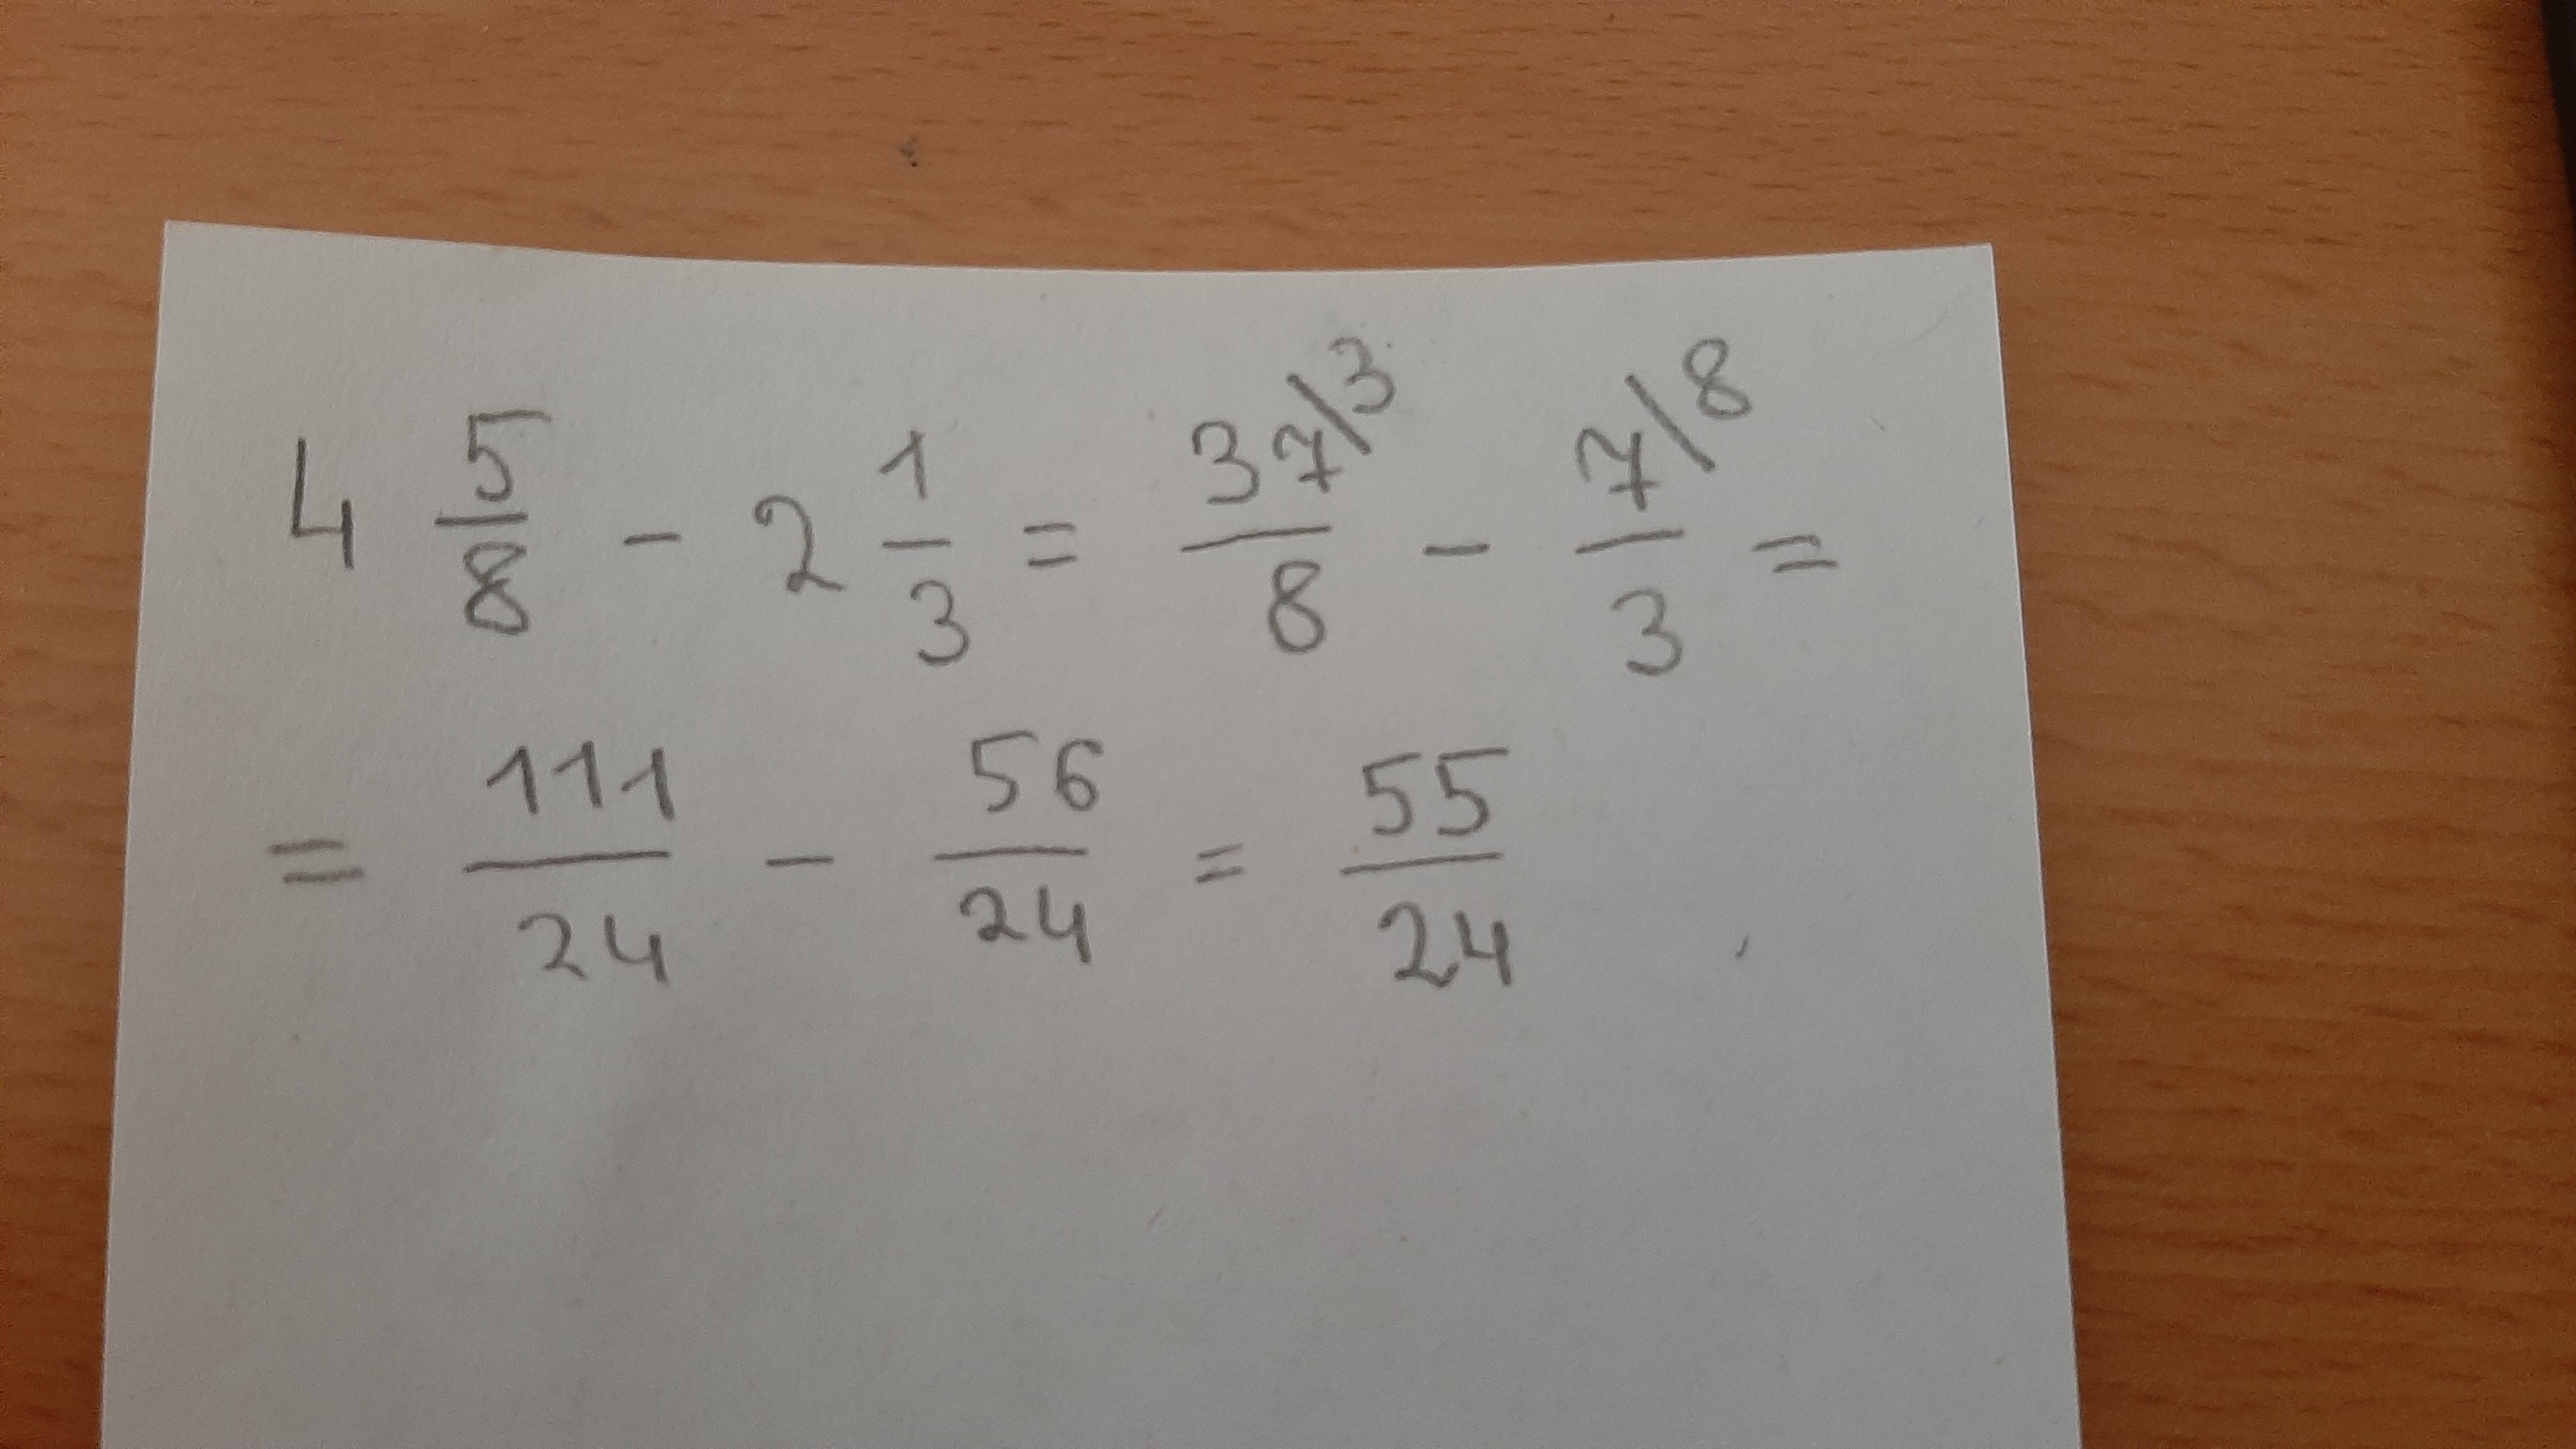 4 5/8 - 2 1/3 = 37\3/8 - 7\8/3 =
= 111/24 - 56/24 = 55/24